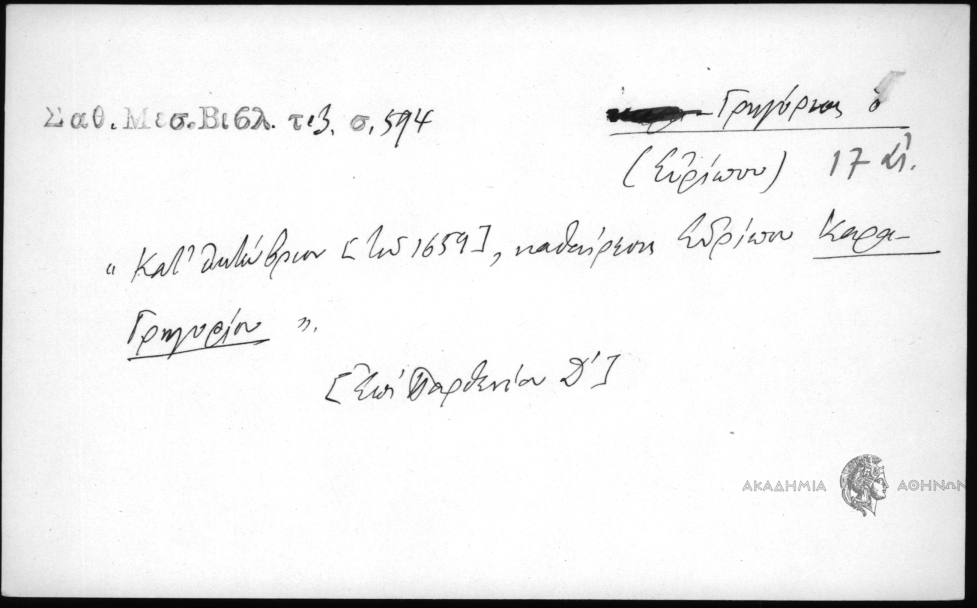 Σαθ. Μεσ. Βιβλ. τ. 3. σ. 594
Γρηγόριος ὁ
(Εὐρίπου) 17 αἰ.
“ Κατ' Ὀκτώβριον [τοῦ 1659], καθαίρεσις Εὐρίπου Καρα-
Γρηγορίου ”.
[Ἐπὶ Παρθενίου Δ']
ΑΚΑΔΗΜΙΑ ΑΘΗΝΩΝ